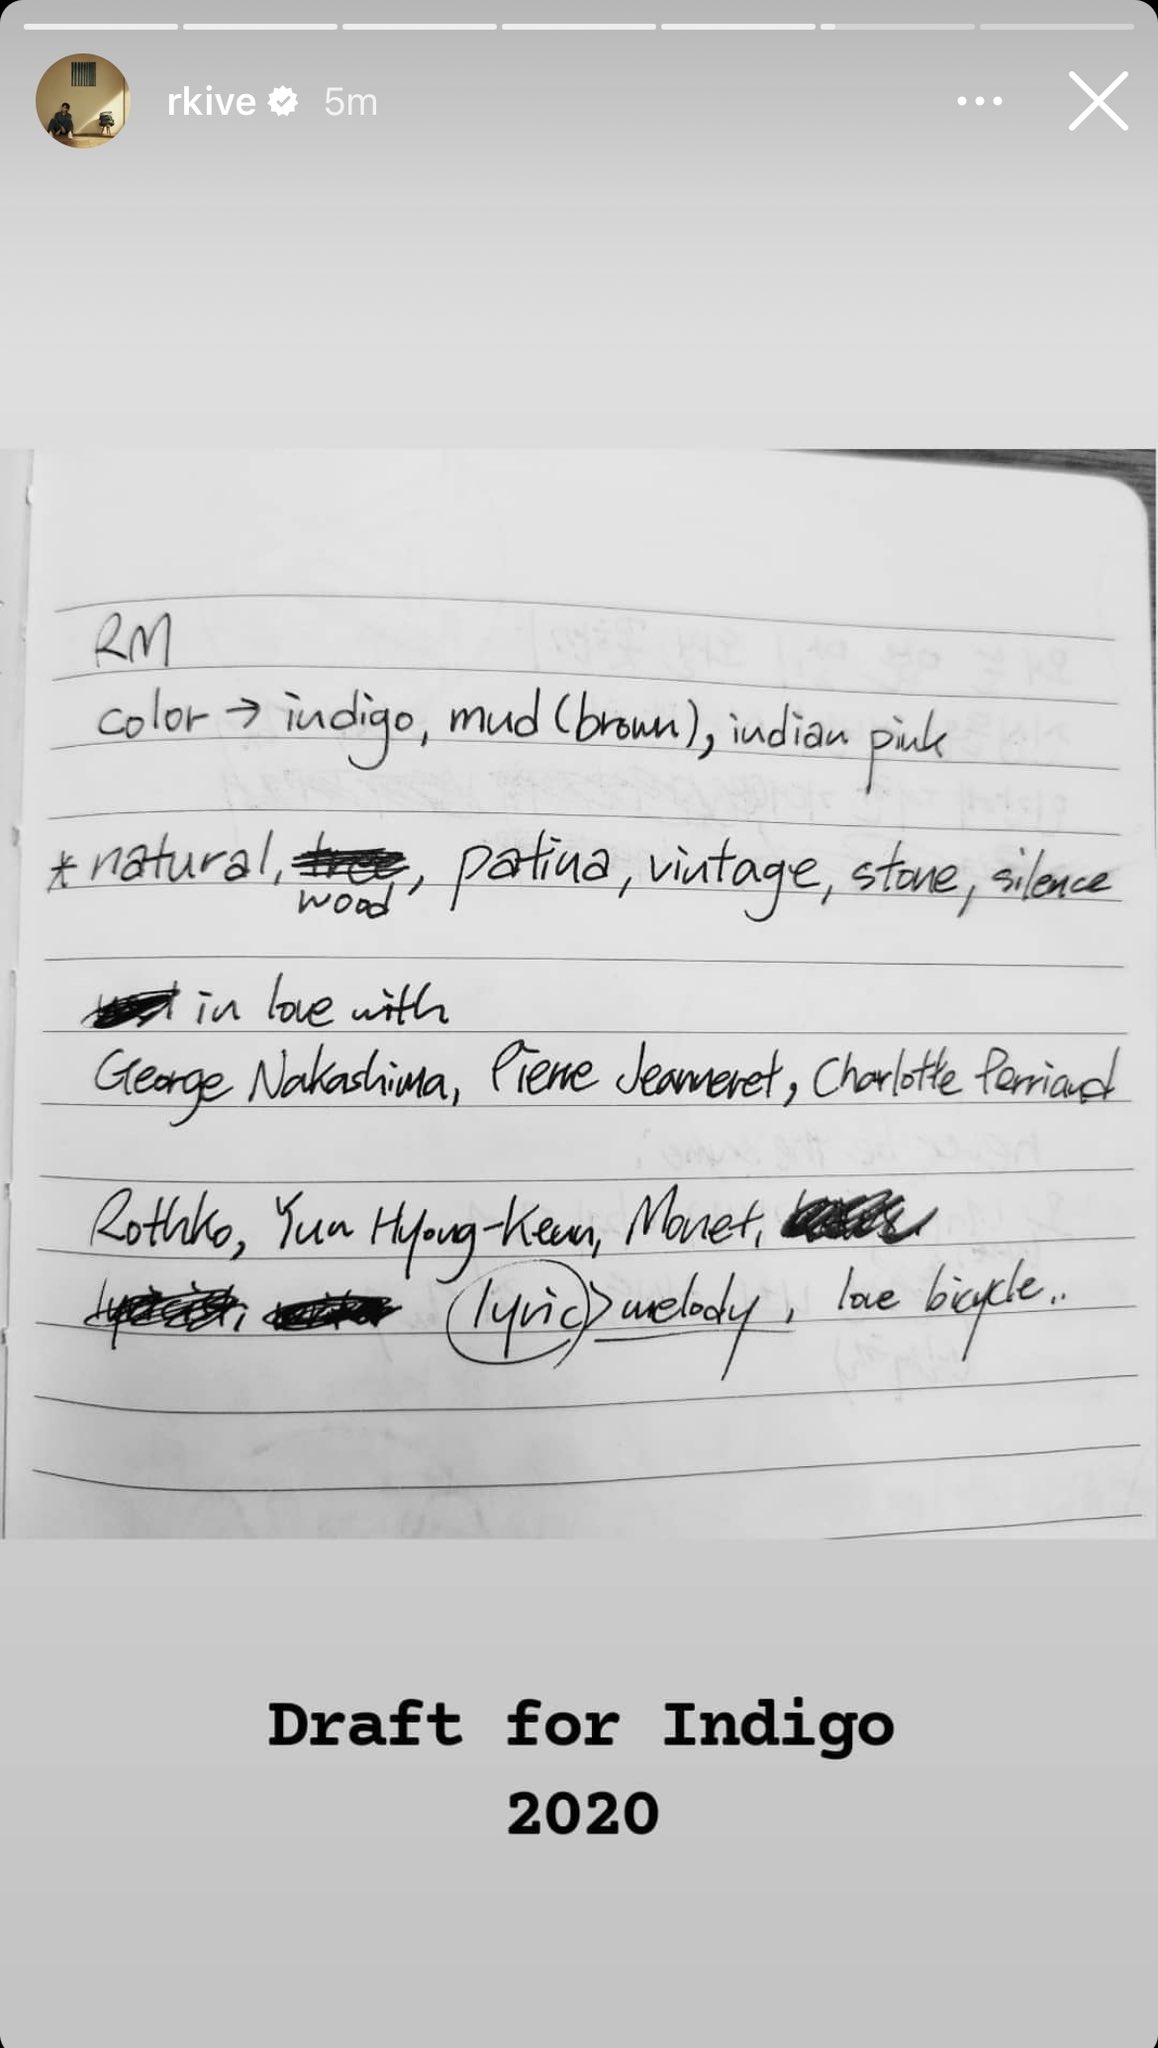 rkive 5m
RM
color → indigo, mud (brown), indian pink
* natural, tree, patina, vintage, stone, silence
wood
in love with
George Nakashima, Pierre Jeanneret, Charlotte Perriand
Rothko, Yun Hyong-Keun, Monet,
lyric > melody, love bicycle..
Draft for Indigo
2020